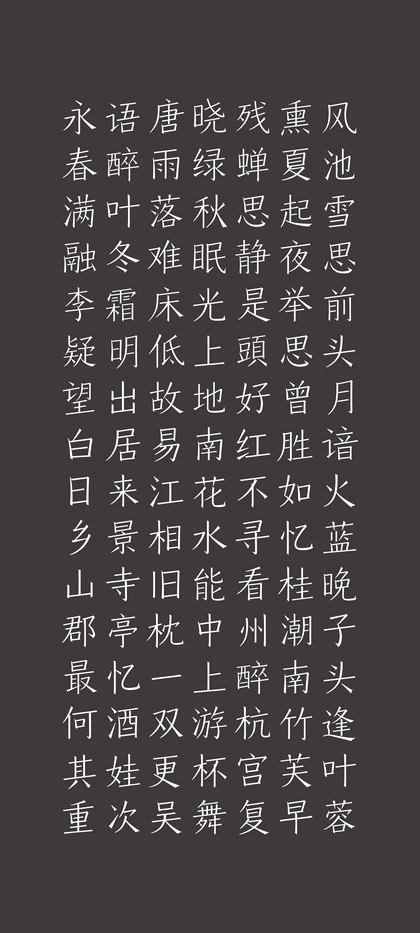 永语唐晓残熏风
春醉雨绿蝉夏池
满叶落秋思起雪
融冬难眠静夜思
李霜床光是举前
疑明低上頭思头
望出故地好曾月
白居易南红胜谙
日来江花不如火
乡景相水寻忆蓝
山寺旧能看桂晚
郡亭枕中州潮子
最忆一上醉南头
何酒双游杭竹逢
其娃更杯宫芙叶
重次吴舞复早蓉